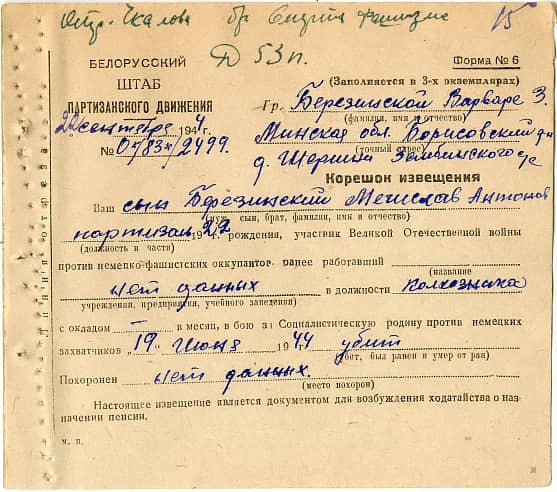 Отр. Чкалова бр. Смерть фашизму
15
Д 53п.
БЕЛОРУССКИЙ
ШТАБ
ПАРТИЗАНСКОГО ДВИЖЕНИЯ
22 сентября 1944 г.
№ 0783н/2499.
Форма № 6
(Заполняется в 3-х экземплярах)
Гр. Березинской Варваре З.
(фамилия, имя и отчество)
Минская обл. Борисовский р-н
(точный адрес)
д. Шерпини Зембинского с/с
Корешок извещения
Ваш сын Березинский Мечислав Антонов
(муж, сын, брат, фамилия, имя и отчество)
партизан 1922 рождения, участник Великой Отечественной войны
(должность в части)
против немецко-фашистских оккупантов ранее работавший
(название
нет данных в должности Колхозника
учреждения, предприятия, учебного заведения)
с окладом — в месяц, в бою за Социалистическую родину против немецких
захватчиков „19" июня 1944 убит
(убит, был ранен и умер от ран)
Похоронен нет данных.
(место похорон)
Настоящее извещение является документом для возбуждения ходатайства о наз-
начении пенсии.
м. п.
Линия отреза